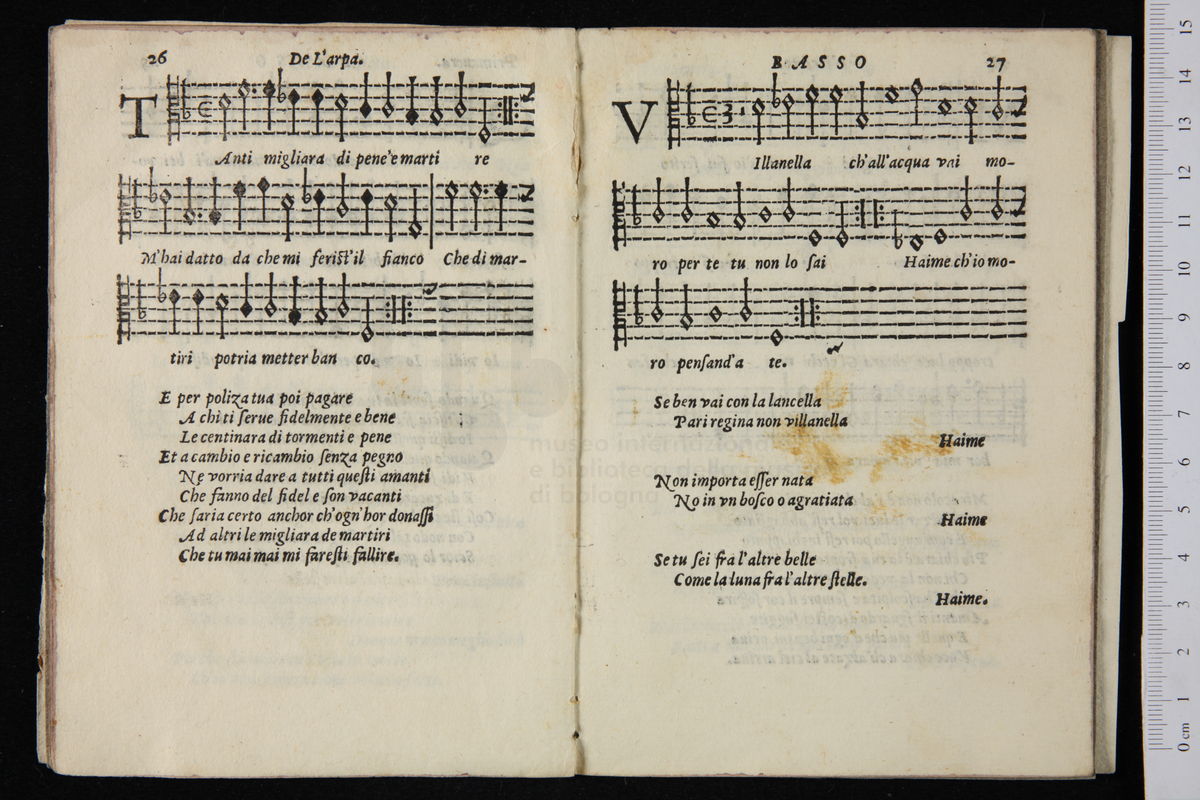 26
De L'arpa.
T
Anti migliara di pene'e marti re
M'hai datto da che mi ferist'il fianco Che di mar-
tiri potria metter ban co.
E per poliza tua poi pagare
A chi ti serue fidelmente e bene
Le centinara di tormenti e pene
Et a cambio e ricambio senza pegno
Ne vorria dare a tutti questi amanti
Che fanno del fidel e son vacanti
Che saria certo anchor ch'ogn'hor donassi
Ad altri le migliara de martiri
Che tu mai mai mi faresti fallire.
BASSO
27
V
Illanella ch'all'acqua vai mo-
ro per te tu non lo sai Haime ch'io mo-
ro pensand'a te.
Se ben vai con la lancella
Pari regina non villanella
Haime
Non importa esser nata
No in vn bosco o agratiata
Haime
Se tu sei fra l'altre belle
Come la luna fra l'altre stelle.
Haime.
museo internazionale
e biblioteca della musica
di bologna
0 cm 1 2 3 4 5 6 7 8 9 10 11 12 13 14 15